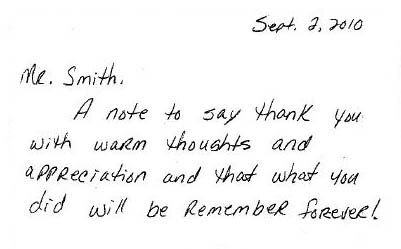 Sept. 2, 2010
Mr. Smith.
A note to say thank you
with warm thoughts and
appreciation and that what you
did will be remember forever!